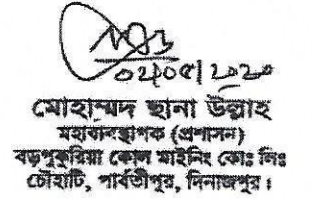 02/05/2020
মোহাম্মদ ছানা উল্লাহ
মহাব্যবস্থাপক (প্রশাসন)
বড়পুকুরিয়া কোল মাইনিং কোঃ লিঃ
চৌহাটি, পার্বতীপুর, দিনাজপুর।